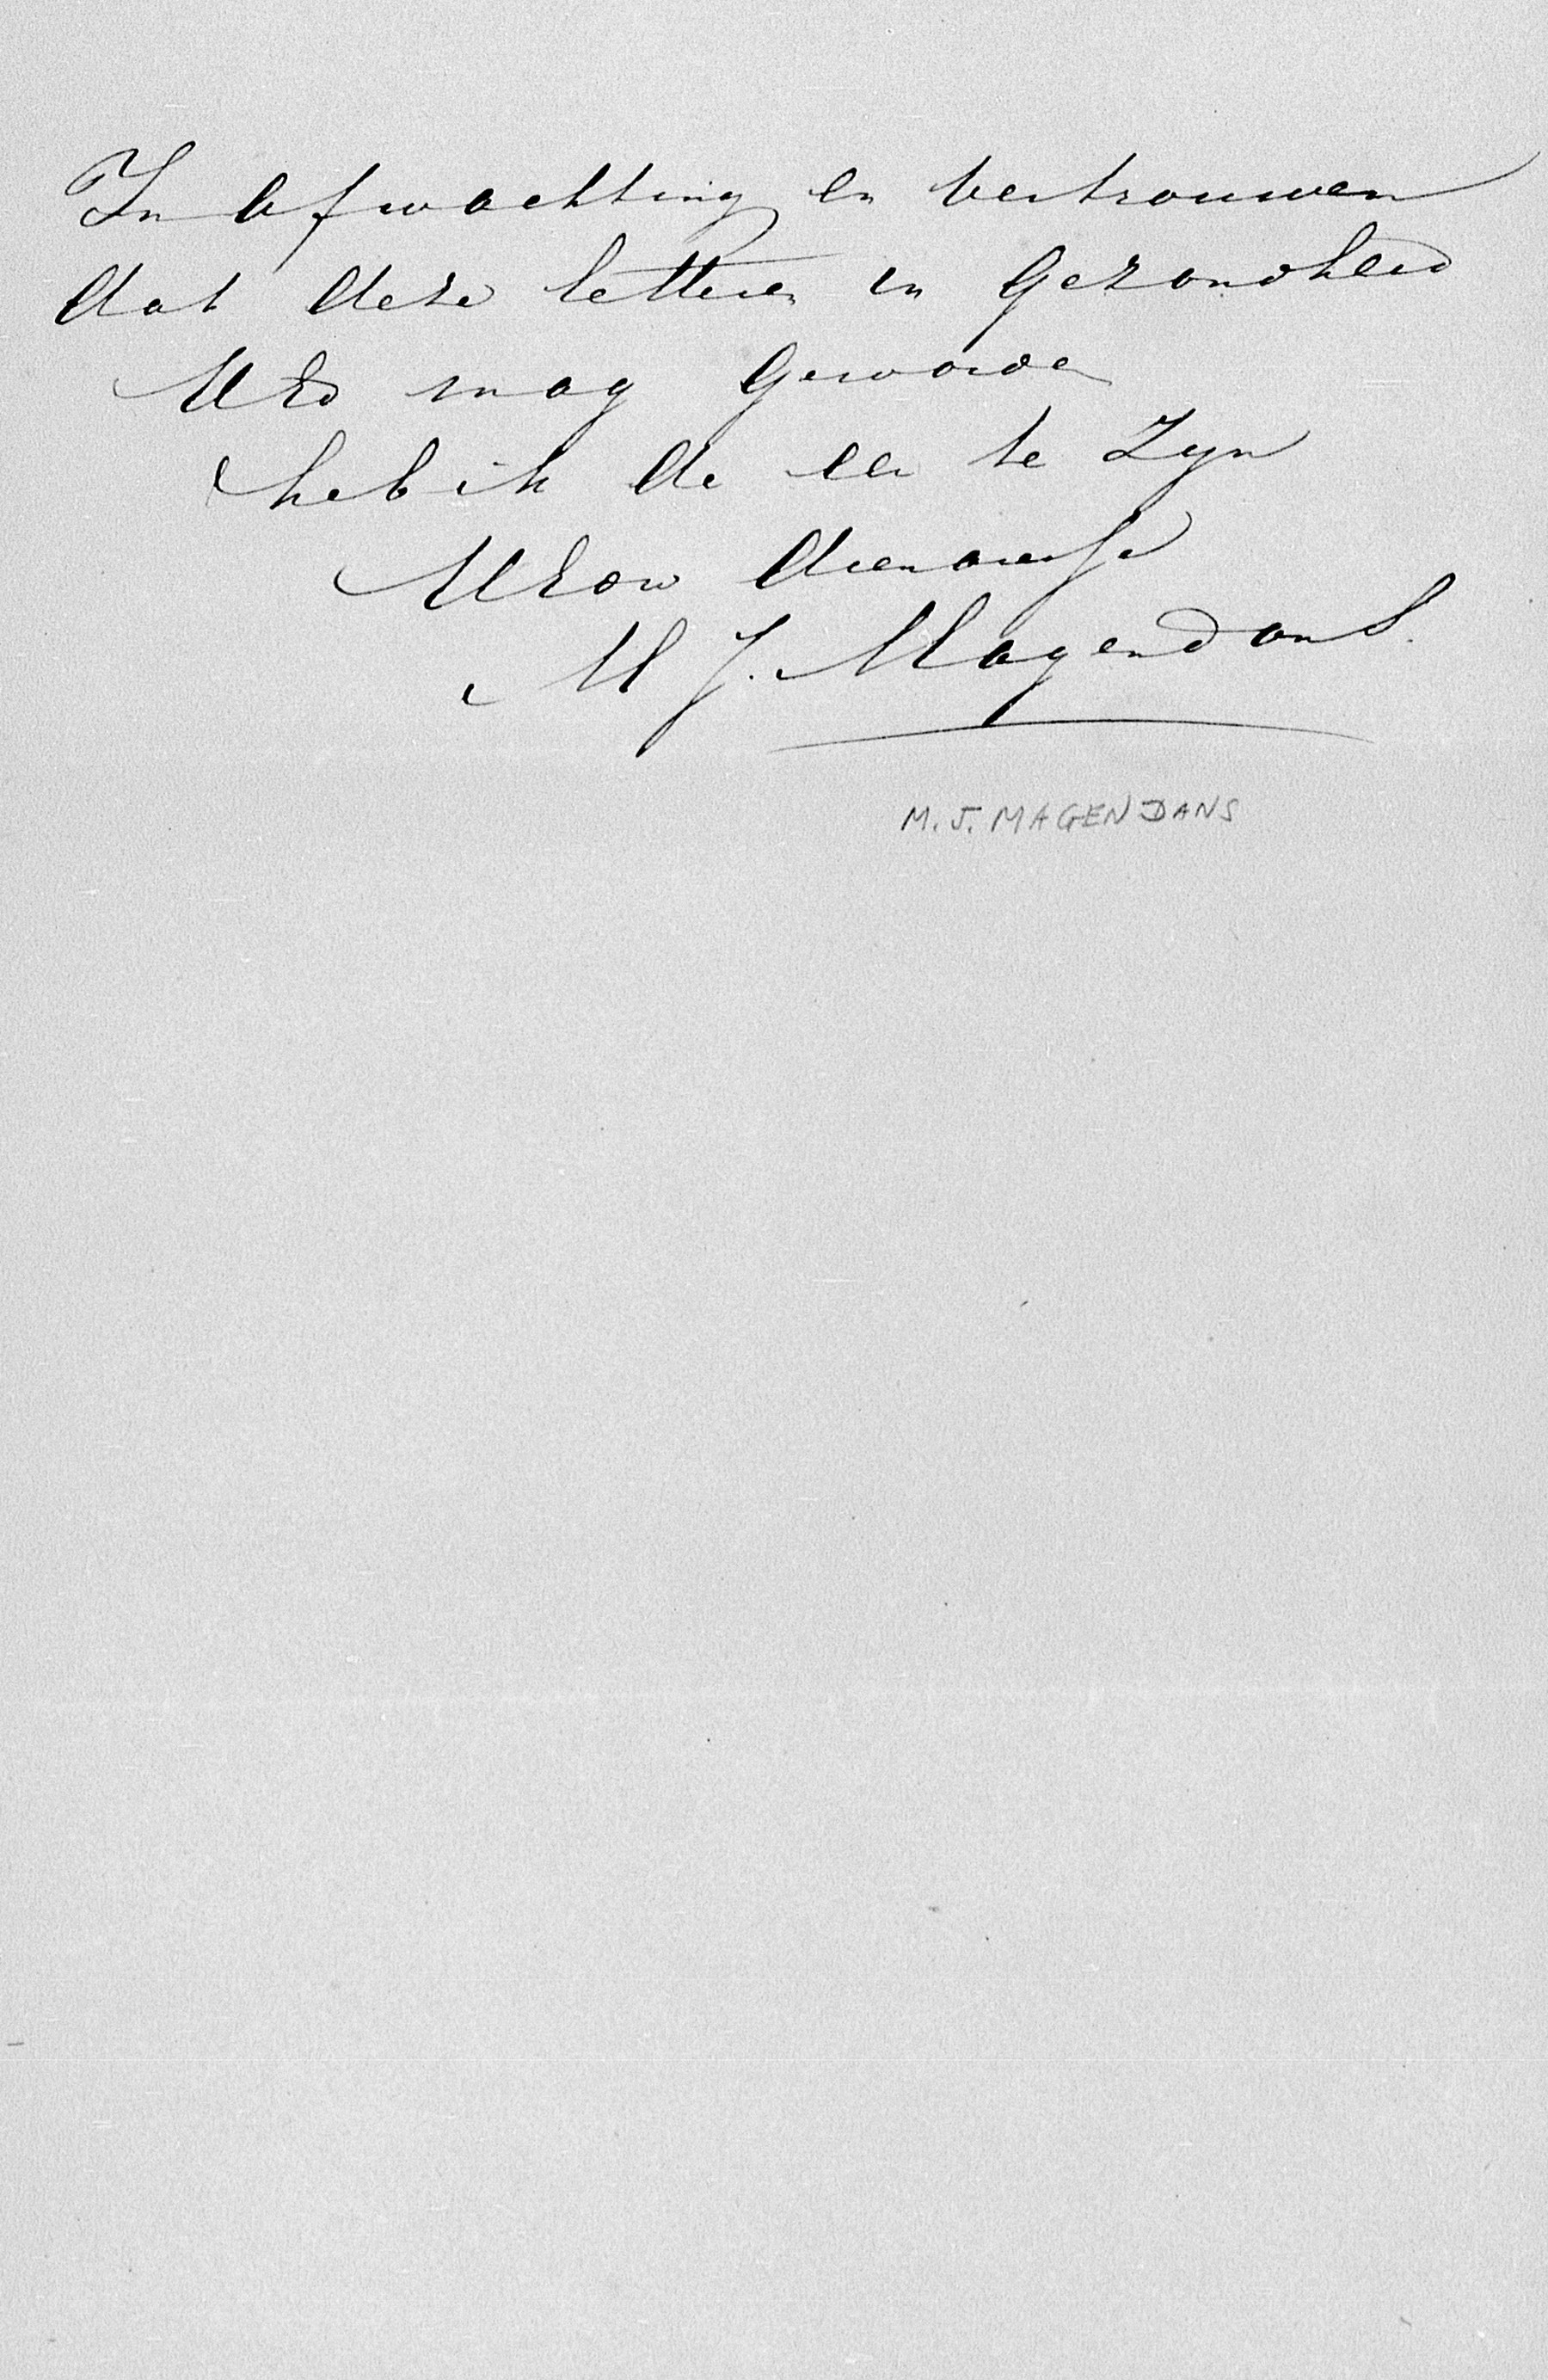 In Afwachting en vertrouwen
dat deze letteren in Gezondheid
UEd mag Geworden
heb ik de eer te Zyn
UEdw dienaresse
M J. Magendans.
M. J. MAGENDANS